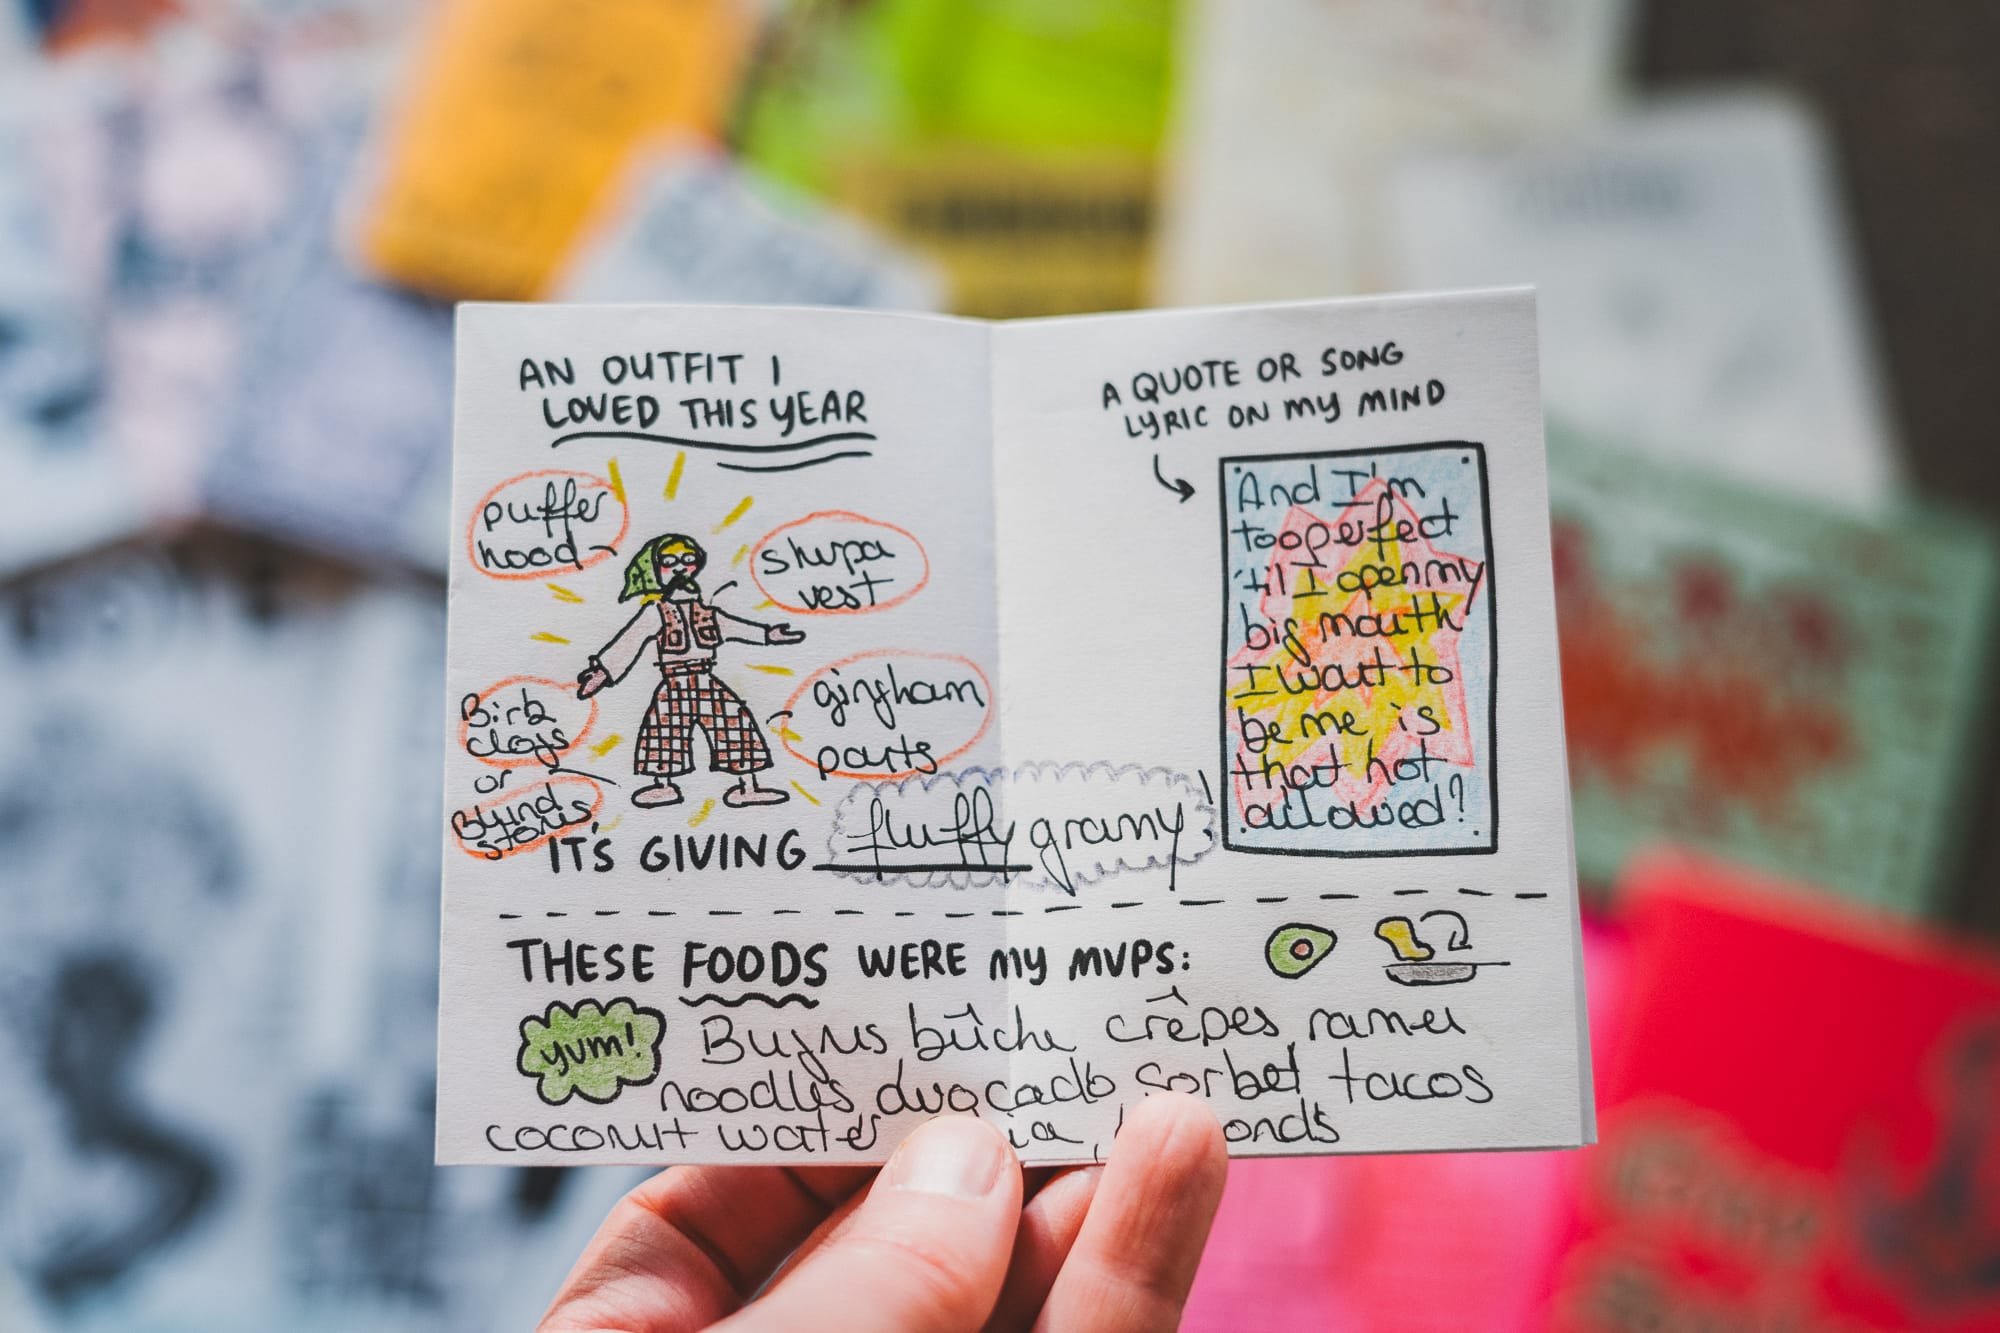 AN OUTFIT I
LOVED THIS YEAR
puffer
hood
sherpa
vest
gingham
pants
Birk
clogs
or
IT'S GIVING fluffy granny!
A QUOTE OR SONG
LYRIC ON MY MIND
And I'm
too perfect
'til I open my
big mouth
I want to
be me is
that not
allowed?
THESE FOODS WERE MY MVPS:
yum!
bûche crêpes, ramen
noodles, avocado sorbet tacos
coconut water